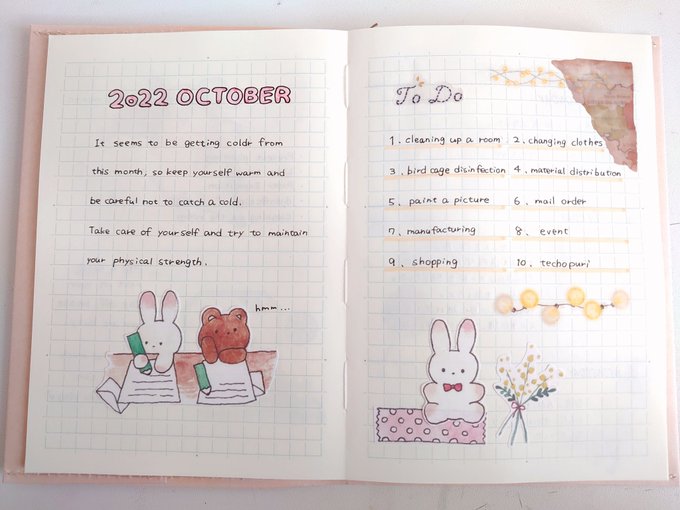 2022 OCTOBER
It seems to be getting coldr from
this month, so keep yourself warm and
be careful not to catch a cold.
Take care of yourself and try to maintain
your physical strength.
hmm...
To Do
1. cleaning up a room 2. changing clothes
3. bird cage disinfection 4. material distribution
5. paint a picture 6. mail order
7. manufacturing 8. event
9. shopping 10. techopuri